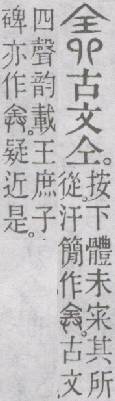 𠓴古文仝。
按下體未宷其所
從。汗簡作。古文
四聲韵載王庶子
碑亦作。疑近是。